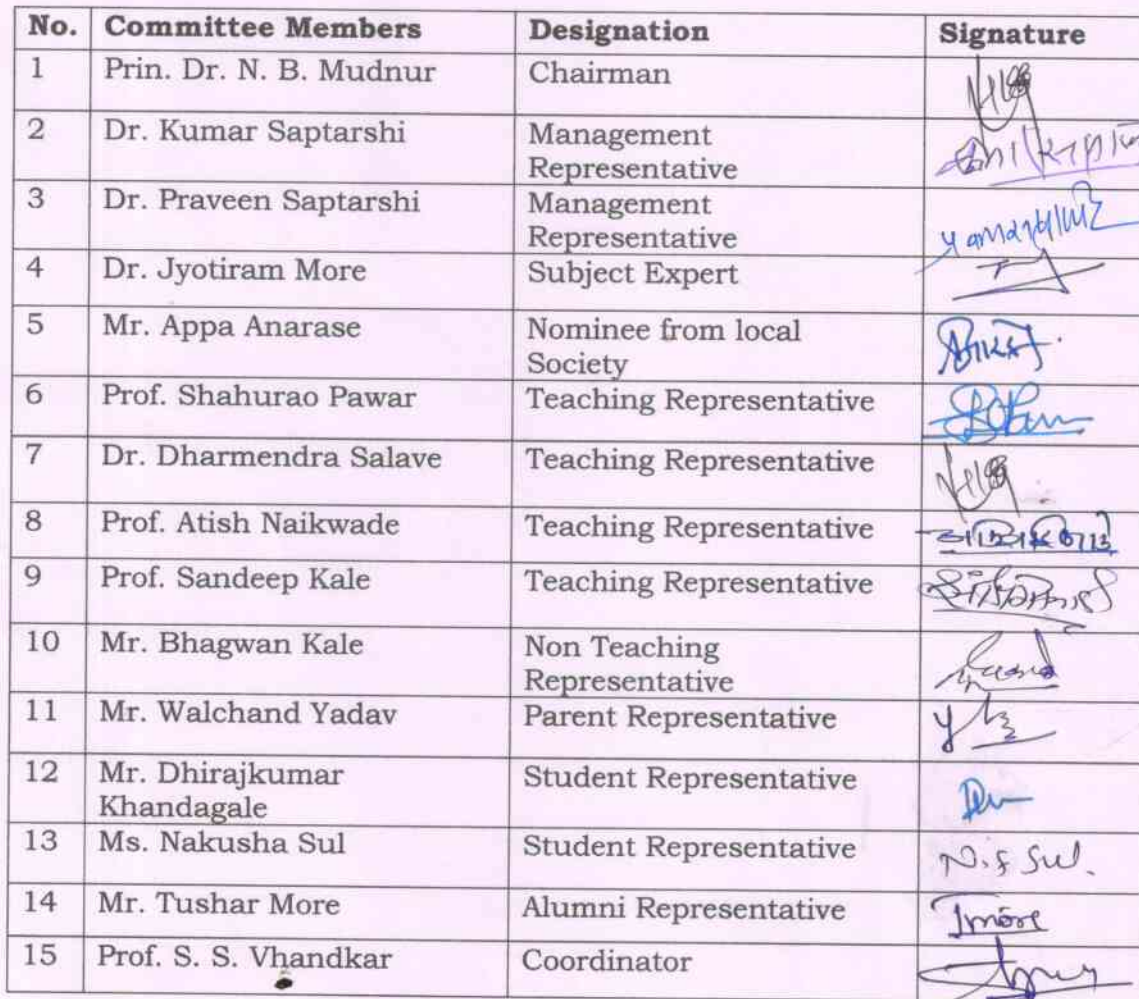 No. Committee Members Designation Signature
1 Prin. Dr. N. B. Mudnur Chairman
2 Dr. Kumar Saptarshi Management
Representative
3 Dr. Praveen Saptarshi Management
Representative
4 Dr. Jyotiram More Subject Expert
5 Mr. Appa Anarase Nominee from local
Society
6 Prof. Shahurao Pawar Teaching Representative
7 Dr. Dharmendra Salave Teaching Representative
8 Prof. Atish Naikwade Teaching Representative
9 Prof. Sandeep Kale Teaching Representative
10 Mr. Bhagwan Kale Non Teaching
Representative
11 Mr. Walchand Yadav Parent Representative
12 Mr. Dhirajkumar Student Representative
Khandagale
13 Ms. Nakusha Sul Student Representative N.S Sul.
14 Mr. Tushar More Alumni Representative Tmore
15 Prof. S. S. Vhandkar Coordinator